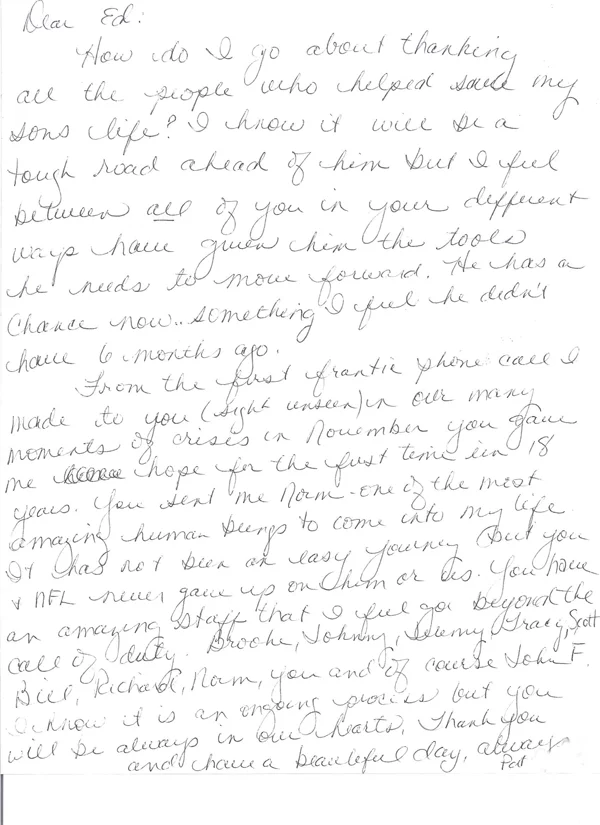 Dear Ed:
How do I go about thanking
all the people who helped save my
sons life? I know it will be a
tough road ahead of him but I feel
between all of you in your different
ways have given him the tools
he needs to move forward. He has a
chance now.. something I feel he didn't
have 6 months ago.
From the first frantic phone call I
made to you (sight unseen) in our many
moments of crisis in November you gave
me hope for the first time in 18
years. You sent me Norm - one of the most
amazing human beings to come into my life.
It has not been an easy journey but you
& NFL never gave up on him or us. You have
an amazing staff that I feel go beyond the
call of duty. Brooke, Johnny, Jeremy, Tracy, Scott
Bill, Richard, Norm, you and of course John F.
I know it is an ongoing process but you
will be always in our hearts. Thank you
and have a beautiful day, always
Pat